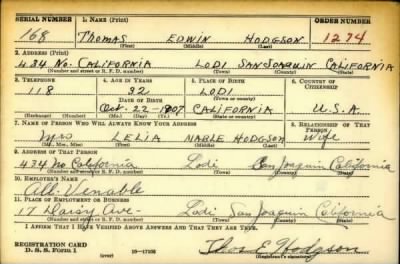 SERIAL NUMBER 1. NAME (Print) ORDER NUMBER
168 THOMAS EDWIN HODGSON 1274
(First) (Middle) (Last)
2. ADDRESS (Print)
434 No. CALIFORNIA LODI SAN JOAQUIN CALIFORNIA
(Number and street or R. F. D. number) (Town) (County) (State)
3. TELEPHONE 4. AGE IN YEARS 5. PLACE OF BIRTH 6. COUNTRY OF CITIZENSHIP
118 32 LODI
DATE OF BIRTH (Town or county)
Oct. 22-1907 CALIFORNIA U.S.A.
(Exchange) (Number) (Mo.) (Day) (Yr.) (State or country)
7. NAME OF PERSON WHO WILL ALWAYS KNOW YOUR ADDRESS 8. RELATIONSHIP OF THAT PERSON
Mrs LELIA MABLE HODGSON Wife
(Mr., Mrs., Miss) (First) (Middle) (Last)
9. ADDRESS OF THAT PERSON
434 No California Lodi San Joaquin California
(Number and street or R. F. D. number) (Town) (County) (State)
10. EMPLOYER'S NAME
Venable
11. PLACE OF EMPLOYMENT OR BUSINESS
17 Daisy Ave- Lodi San Joaquin California
(Number and street or R. F. D. number) (Town) (County) (State)
I AFFIRM THAT I HAVE VERIFIED ABOVE ANSWERS AND THAT THEY ARE TRUE.
REGISTRATION CARD
D. S. S. FORM 1 (over) 16-17105 Thos E Hodgson
(Registrant's signature)